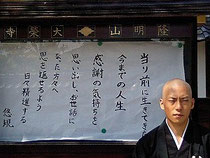 明山 大寺
当り前に生きてき
今までの人生
感謝の気持ちを
思い出し、お世話に
なった方々へ
恩を返せるよう
日々精進する